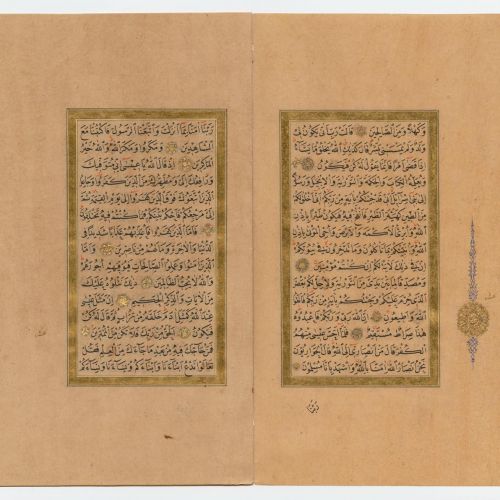 وَكَهْلًا وَمِنَ الصَّالِحِينَ قَالَتْ رَبِّ اَنّٰى يَكُونُ لِى
وَلَدٌ وَلَمْ يَمْسَسْنِى بَشَرٌ قَالَ كَذٰلِكِ اللّٰهُ يَخْلُقُ مَا يَشَاءُ
اِذَا قَضٰى اَمْرًا فَاِنَّمَا يَقُولُ لَهُ كُنْ فَيَكُونُ
وَيُعَلِّمُهُ الْكِتَابَ وَالْحِكْمَةَ وَالتَّوْرٰيةَ وَالْاِنْجِيلَ وَرَسُولًا
اِلٰى بَنِى اِسْرَائِلَ اَنِّى قَدْ جِئْتُكُمْ بِاٰيَةٍ مِنْ رَبِّكُمْ اَنِّى اَخْلُقُ لَكُمْ
مِنَ الطِّينِ كَهَيْئَةِ الطَّيْرِ فَاَنْفُخُ فِيهِ فَيَكُونُ طَيْرًا بِاِذْنِ
اللّٰهِ وَاُبْرِئُ الْاَكْمَهَ وَالْاَبْرَصَ وَاُحْيِى الْمَوْتٰى بِاِذْنِ
اللّٰهِ وَاُنَبِّئُكُمْ بِمَا تَأْكُلُونَ وَمَا تَدَّخِرُونَ فِى بُيُوتِكُمْ
اِنَّ فِى ذٰلِكَ لَاٰيَةً لَكُمْ اِنْ كُنْتُمْ مُؤْمِنِينَ
وَمُصَدِّقًا لِمَا بَيْنَ يَدَىَّ مِنَ التَّوْرٰيةِ وَلِاُحِلَّ لَكُمْ بَعْضَ
الَّذِى حُرِّمَ عَلَيْكُمْ وَجِئْتُكُمْ بِاٰيَةٍ مِنْ رَبِّكُمْ فَاتَّقُوا
اللّٰهَ وَاَطِيعُونِ اِنَّ اللّٰهَ رَبِّى وَرَبُّكُمْ فَاعْبُدُوهُ
هٰذَا صِرَاطٌ مُسْتَقِيمٌ فَلَمَّا اَحَسَّ عِيسٰى مِنْهُمُ
الْكُفْرَ قَالَ مَنْ اَنْصَارِى اِلَى اللّٰهِ قَالَ الْحَوَارِيُّونَ
نَحْنُ اَنْصَارُ اللّٰهِ اٰمَنَّا بِاللّٰهِ وَاشْهَدْ بِاَنَّا مُسْلِمُونَ
رَبَّنَا
رَبَّنَا اٰمَنَّا بِمَا اَنْزَلْتَ وَاتَّبَعْنَا الرَّسُولَ فَاكْتُبْنَا مَعَ
الشَّاهِدِينَ وَمَكَرُوا وَمَكَرَ اللّٰهُ وَاللّٰهُ خَيْرُ
الْمَاكِرِينَ اِذْ قَالَ اللّٰهُ يَا عِيسٰى اِنِّى مُتَوَفِّيكَ
وَرَافِعُكَ اِلَىَّ وَمُطَهِّرُكَ مِنَ الَّذِينَ كَفَرُوا وَجَاعِلُ
الَّذِينَ اتَّبَعُوكَ فَوْقَ الَّذِينَ كَفَرُوا اِلٰى يَوْمِ الْقِيٰمَةِ ثُمَّ
اِلَىَّ مَرْجِعُكُمْ فَاَحْكُمُ بَيْنَكُمْ فِيمَا كُنْتُمْ فِيهِ تَخْتَلِفُونَ
فَاَمَّا الَّذِينَ كَفَرُوا فَاُعَذِّبُهُمْ عَذَابًا شَدِيدًا فِى
الدُّنْيَا وَالْاٰخِرَةِ وَمَا لَهُمْ مِنْ نَاصِرِينَ وَاَمَّا
الَّذِينَ اٰمَنُوا وَعَمِلُوا الصَّالِحَاتِ فَيُوَفِّيهِمْ اُجُورَهُمْ
وَاللّٰهُ لَا يُحِبُّ الظَّالِمِينَ ذٰلِكَ نَتْلُوهُ عَلَيْكَ
مِنَ الْاٰيَاتِ وَالذِّكْرِ الْحَكِيمِ اِنَّ مَثَلَ عِيسٰى
عِنْدَ اللّٰهِ كَمَثَلِ اٰدَمَ خَلَقَهُ مِنْ تُرَابٍ ثُمَّ قَالَ لَهُ كُنْ
فَيَكُونُ اَلْحَقُّ مِنْ رَبِّكَ فَلَا تَكُنْ مِنَ الْمُمْتَرِينَ
فَمَنْ حَاجَّكَ فِيهِ مِنْ بَعْدِ مَا جَاءَكَ مِنَ الْعِلْمِ فَقُلْ
تَعَالَوْا نَدْعُ اَبْنَاءَنَا وَاَبْنَاءَكُمْ وَنِسَاءَنَا وَنِسَاءَكُمْ